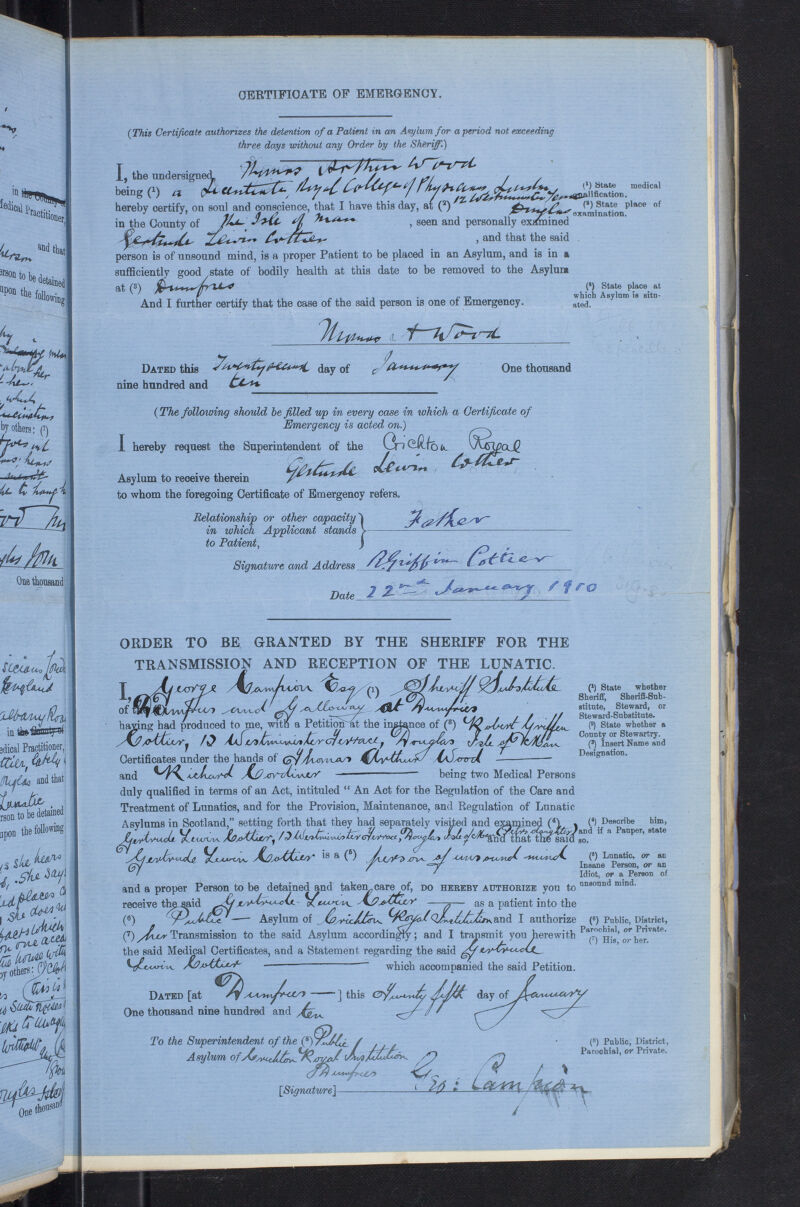 CERTIFICATE OF EMERGENCY.
(This Certificate authorizes the detention of a Patient in an Asylum for a period not exceeding
three days without any Order by the Sheriff.)
I, the undersigned, Thomas Arthur Wood
being (¹) a Licentiate Royal College of Physicians London
(¹) State medical
qualification.
hereby certify, on soul and conscience, that I have this day, at (²) 12 Westminster Terrace
Douglas
(²) State place of
examination.
in the County of The Isle of Man, seen and personally examined
Gertrude Lewin Cottier, and that the said
person is of unsound mind, is a proper Patient to be placed in an Asylum, and is in a
sufficiently good state of bodily health at this date to be removed to the Asylum
at (³) Dumfries
(³) State place at
which Asylum is situ-
ated.
And I further certify that the case of the said person is one of Emergency.
Thomas A Wood
DATED this Twenty second day of January One thousand
nine hundred and ten
(The following should be filled up in every case in which a Certificate of
Emergency is acted on.)
I hereby request the Superintendent of the Crichton Royal
Asylum to receive therein Gertrude Lewin Cottier
to whom the foregoing Certificate of Emergency refers.
Relationship or other capacity
in which Applicant stands
to Patient,
Father
Signature and Address R Griffin Cottier
Date 22nd January 1910
ORDER TO BE GRANTED BY THE SHERIFF FOR THE
TRANSMISSION AND RECEPTION OF THE LUNATIC.
I, George Campion Esq (¹) Sheriff Substitute
of Dumfries and Galloway at Dumfries
(¹) State whether
Sheriff, Sheriff-Sub-
stitute, Steward, or
Steward-Substitute.
(²) State whether a
County or Stewartry.
(³) Insert Name and
Designation.
having had produced to me, with a Petition at the instance of (³) Robert Griffen
Cottier, 13 Westminister Terrace, Douglas Isle of Man
Certificates under the hands of Thomas Arthur Wood
and Richard Cordiner being two Medical Persons
duly qualified in terms of an Act, intituled "An Act for the Regulation of the Care and
Treatment of Lunatics, and for the Provision, Maintenance, and Regulation of Lunatic
Asylums in Scotland," setting forth that they had separately visited and examined (⁴)
Gertrude Lewin Cottier, 13 Westminister Terrace, Douglas Isle of Man (Petrs daughter) and that the said
(⁴) Describe him,
and if a Pauper, state
so.
Gertrude Lewin Cottier is a (⁵) person of unsound mind
(⁵) Lunatic, or an
Insane Person, or an
Idiot, or a Person of
unsound mind.
and a proper Person to be detained and taken care of, DO HEREBY AUTHORIZE you to
receive the said Gertrude Lewin Cottier as a patient into the
(⁶) Public Asylum of Crichton Royal Institution and I authorize
(⁶) Public, District,
Parochial, or Private.
(⁷) her Transmission to the said Asylum accordingly; and I transmit you herewith
(⁷) His, or her.
the said Medical Certificates, and a Statement regarding the said Gertrude
Lewin Cottier which accompanied the said Petition.
DATED [at Dumfries] this Twenty fifth day of January
One thousand nine hundred and ten
To the Superintendent of the (⁸) Public
Asylum of Crichton Royal Institution
Dumfries
(⁸) Public, District,
Parochial, or Private.
[Signature] Geo: Campion